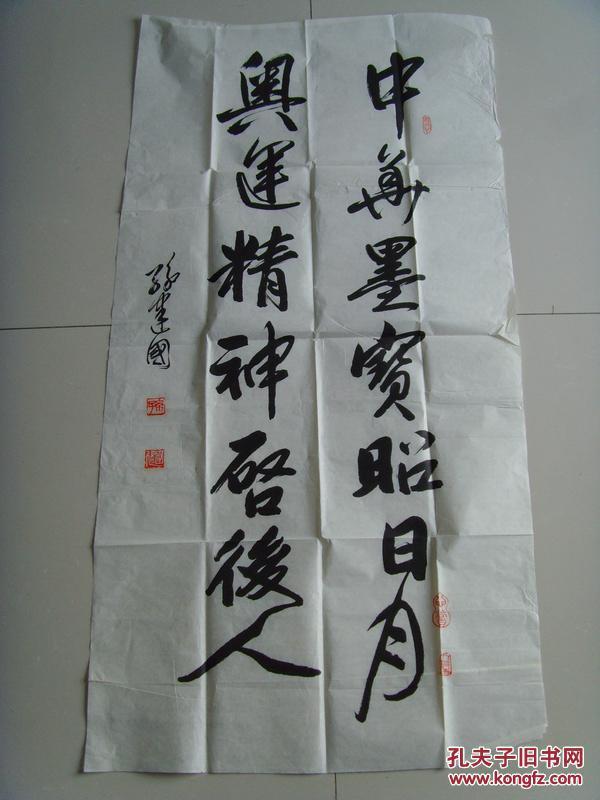 中華墨寶昭日月
奥運精神啓後人
孫建國
孔夫子旧书网
www.kongfz.com